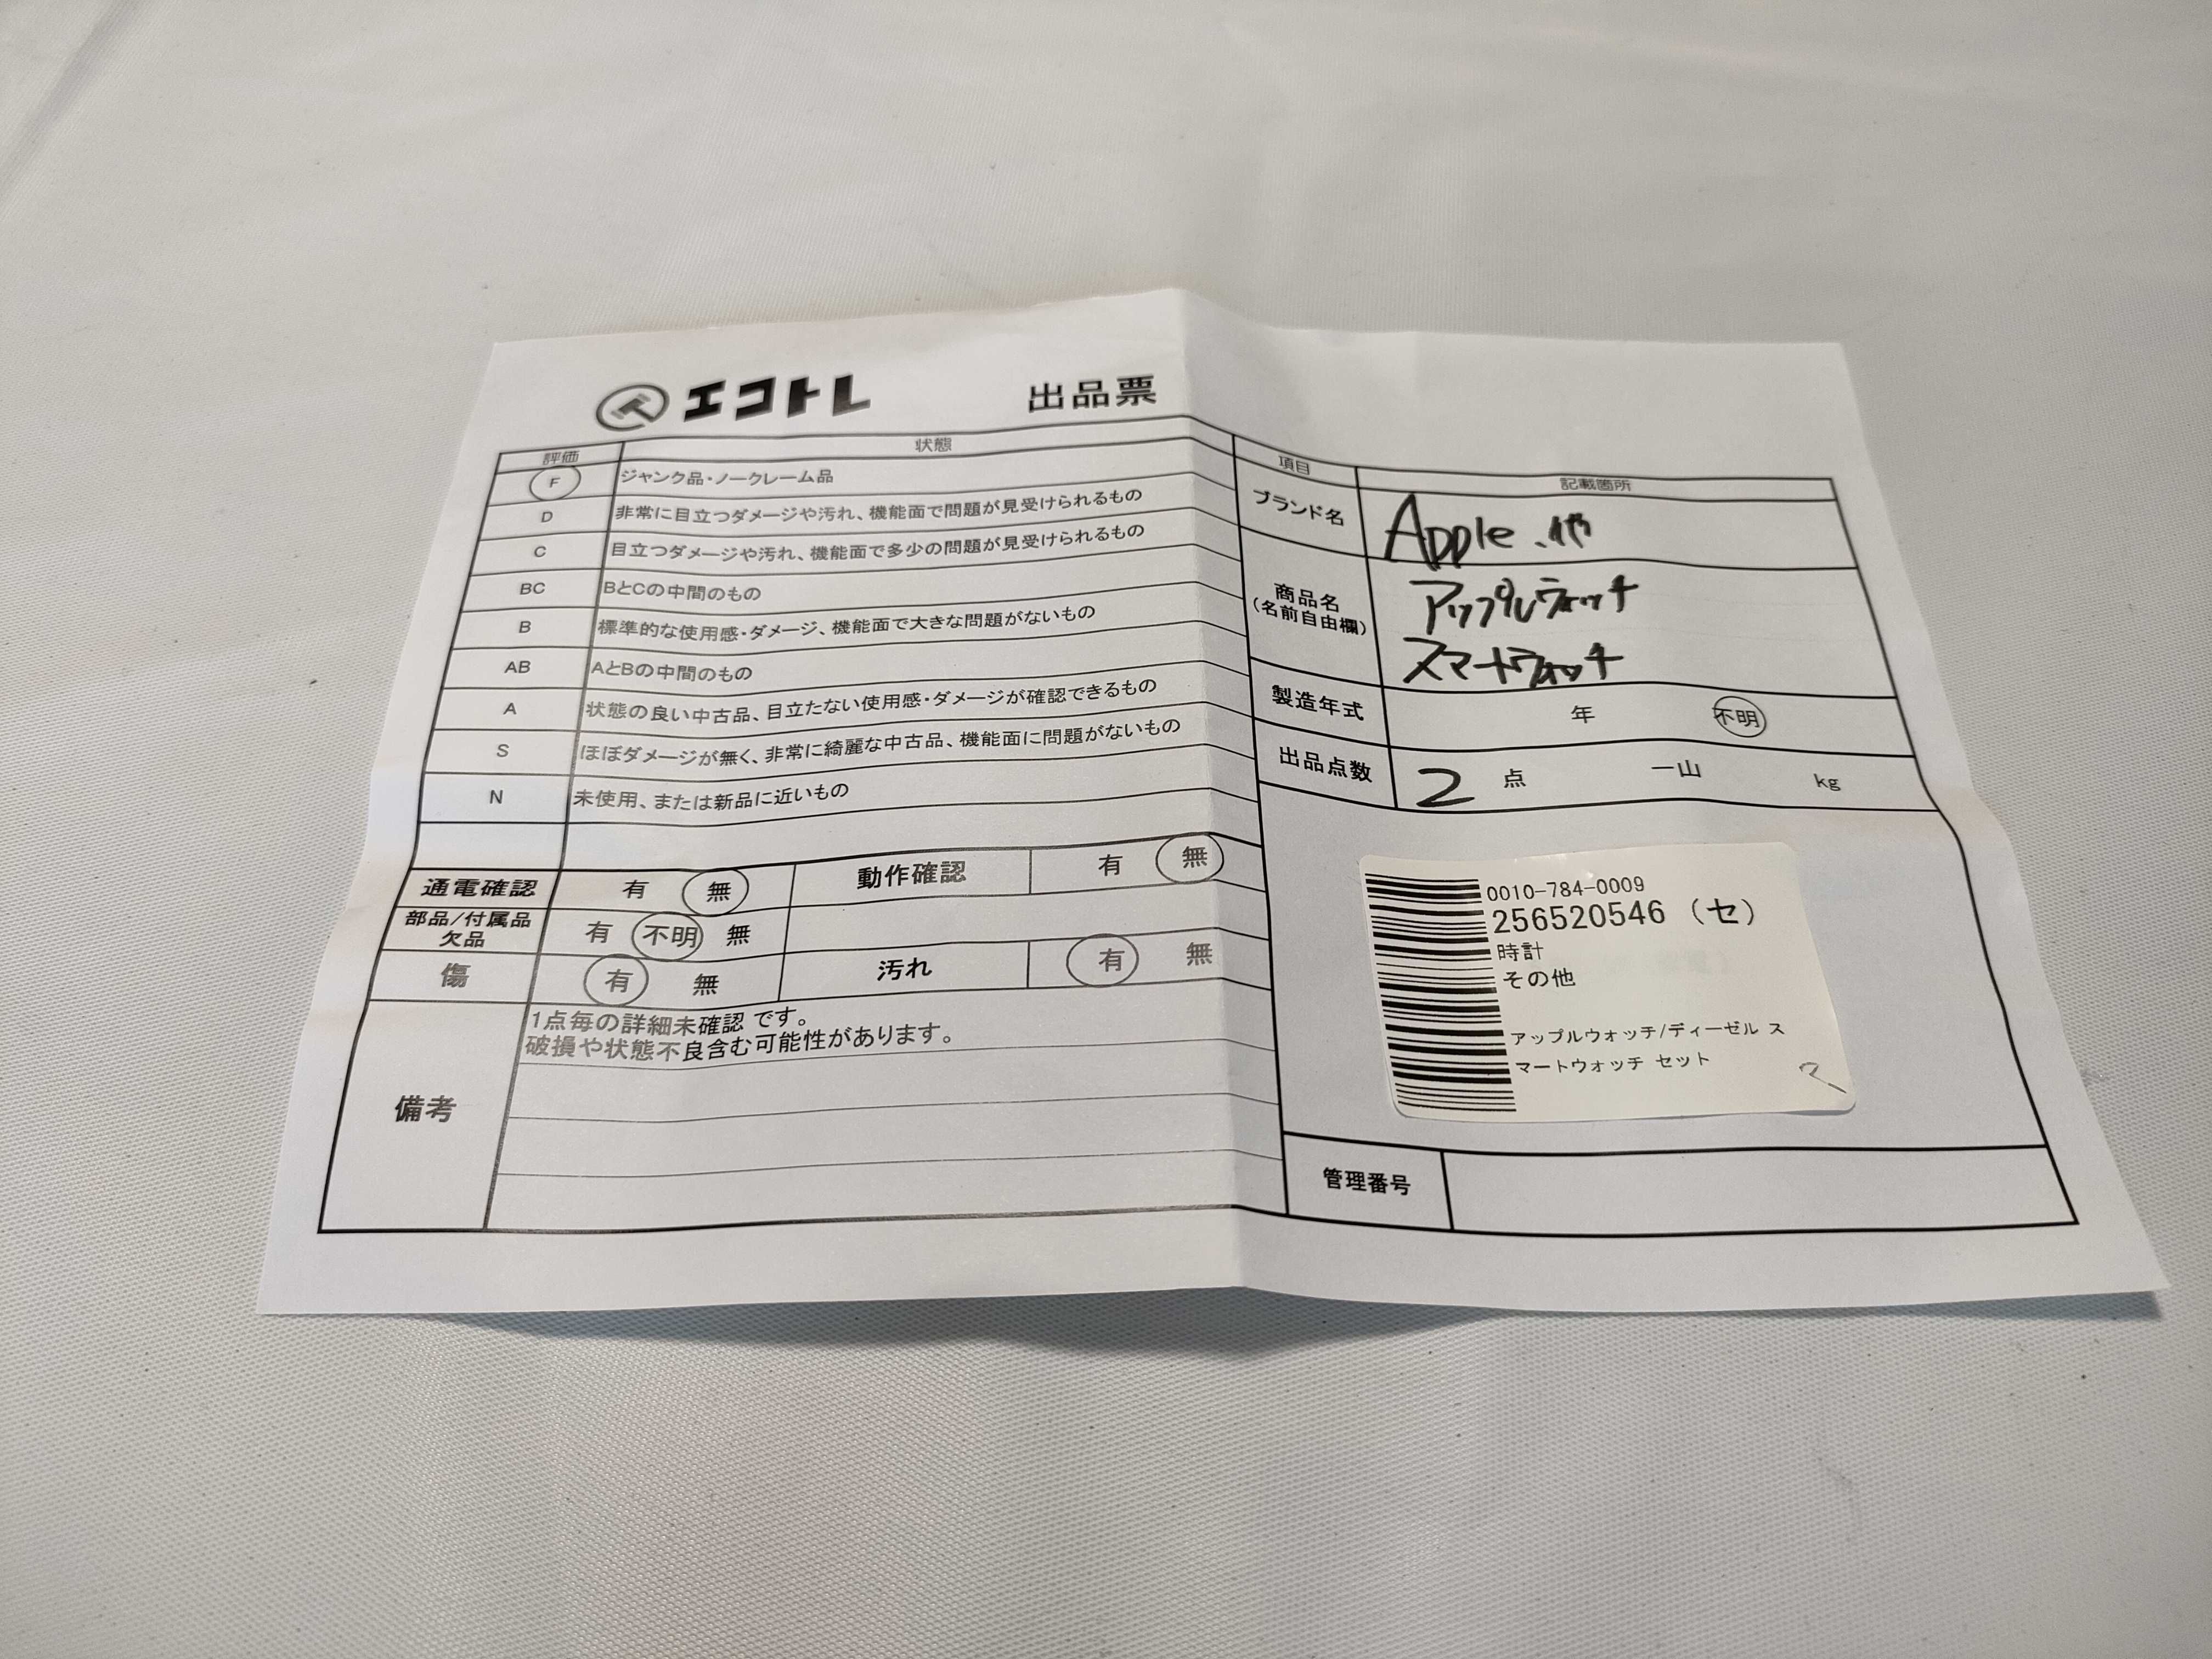 エコトレ 出品票
評価 状態
F ジャンク品・ノークレーム品
D 非常に目立つダメージや汚れ、機能面で問題が見受けられるもの
C 目立つダメージや汚れ、機能面で多少の問題が見受けられるもの
BC BとCの中間のもの
B 標準的な使用感・ダメージ、機能面で大きな問題がないもの
AB AとBの中間のもの
A 状態の良い中古品、目立たない使用感・ダメージが確認できるもの
S ほぼダメージが無く、非常に綺麗な中古品、機能面に問題がないもの
N 未使用、または新品に近いもの
通電確認 有 無 動作確認 有 無
部品/付属品
欠品 有 不明 無
傷 有 無 汚れ 有 無
備考
1点毎の詳細未確認 です。
破損や状態不良含む可能性があります。
項目 記載箇所
ブランド名 Apple、他
商品名
(名前自由欄)
アップルウォッチ
スマートウォッチ
製造年式 年 不明
出品点数 2 点 一山 kg
0010-784-0009
256520546 (セ)
時計
その他
アップルウォッチ/ディーゼル ス
マートウォッチ セット
管理番号